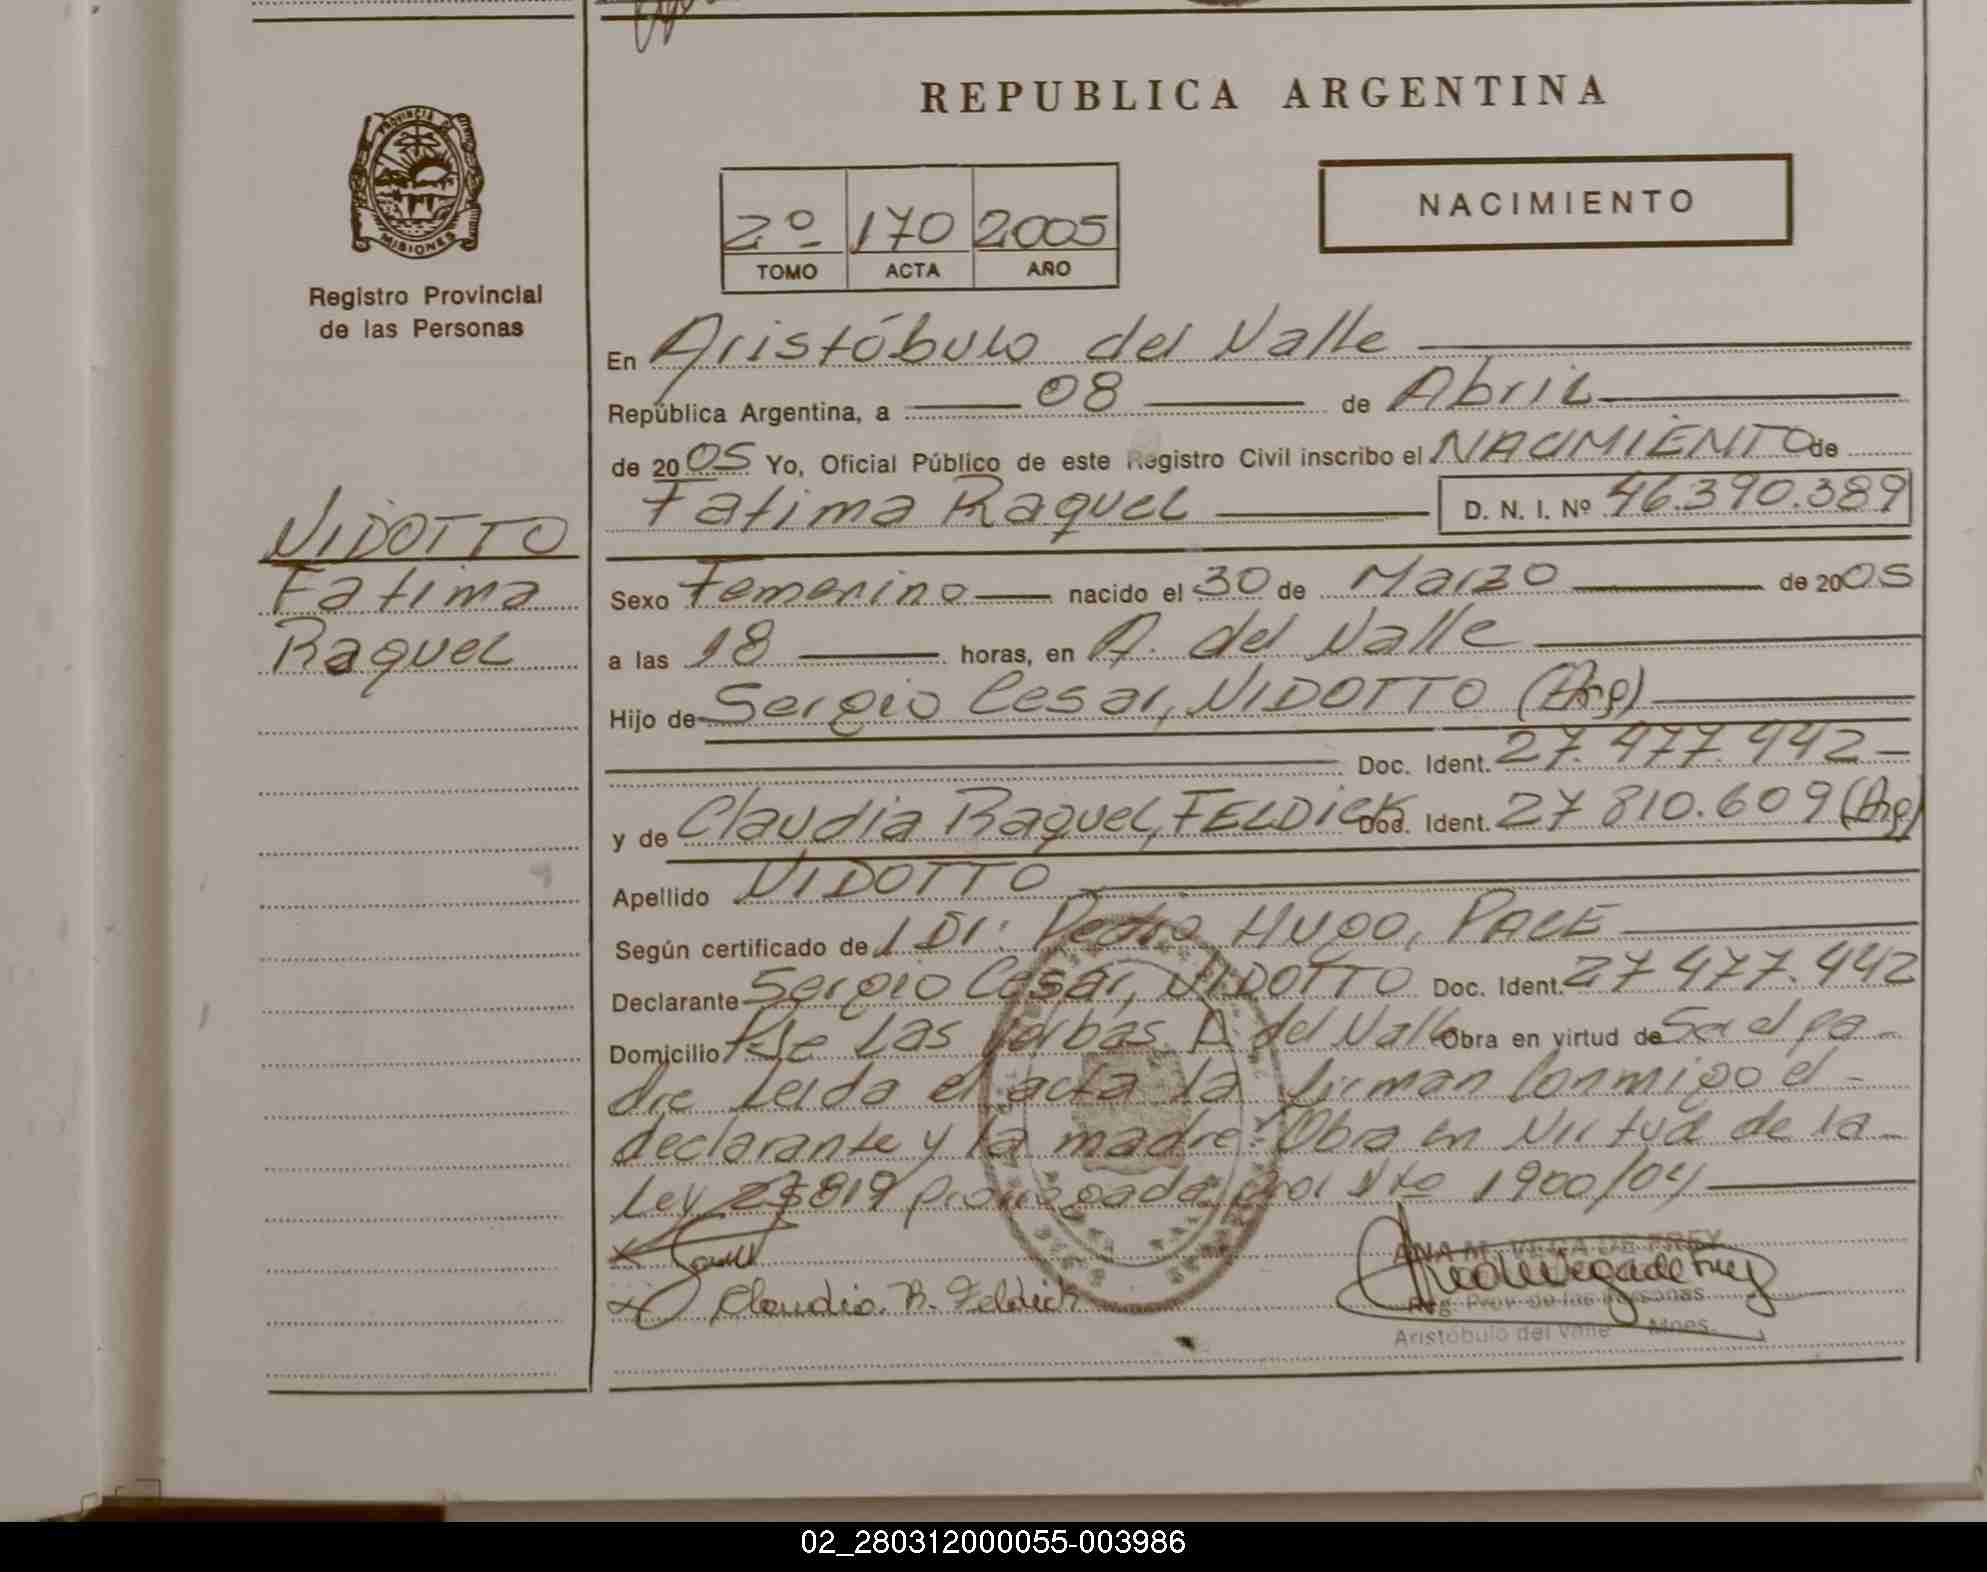 REPUBLICA ARGENTINA
PROVINCIA DE
MISIONES
Registro Provincial
de las Personas
2º 170 2005
TOMO ACTA AÑO
NACIMIENTO
VIDOTTO
Fatima
Raquel
En Aristóbulo del Valle
República Argentina, a 08 de Abril
de 2005 Yo, Oficial Público de este Registro Civil inscribo el NACIMIENTO de
Fatima Raquel D. N. I. Nº 46.390.389
Sexo Femenino nacido el 30 de Marzo de 2005
a las 18 horas, en A. del Valle
Hijo de Sergio Cesar, VIDOTTO (Arg)
Doc. Ident. 27.477.442
y de Claudia Raquel, FELDICK Doc. Ident. 27 810.609 (Arg)
Apellido VIDOTTO
Según certificado de Dr. Pedro Hugo, PACE
Declarante Sergio Cesar, VIDOTTO Doc. Ident. 27 477.442
Domicilio Las Yerbas A del Valle Obra en virtud de Ser el pa
dre Leida el acta la firman Conmigo el
declarante y la madre. Obra en Virtud de la
Ley 23819 prorrogada por Dto 1900/04
Claudia. R. Feldick
ANA M. VEGA DE FREY
Reg. Prov. de las Personas
Aristóbulo del Valle Mnes.
02_280312000055-003986